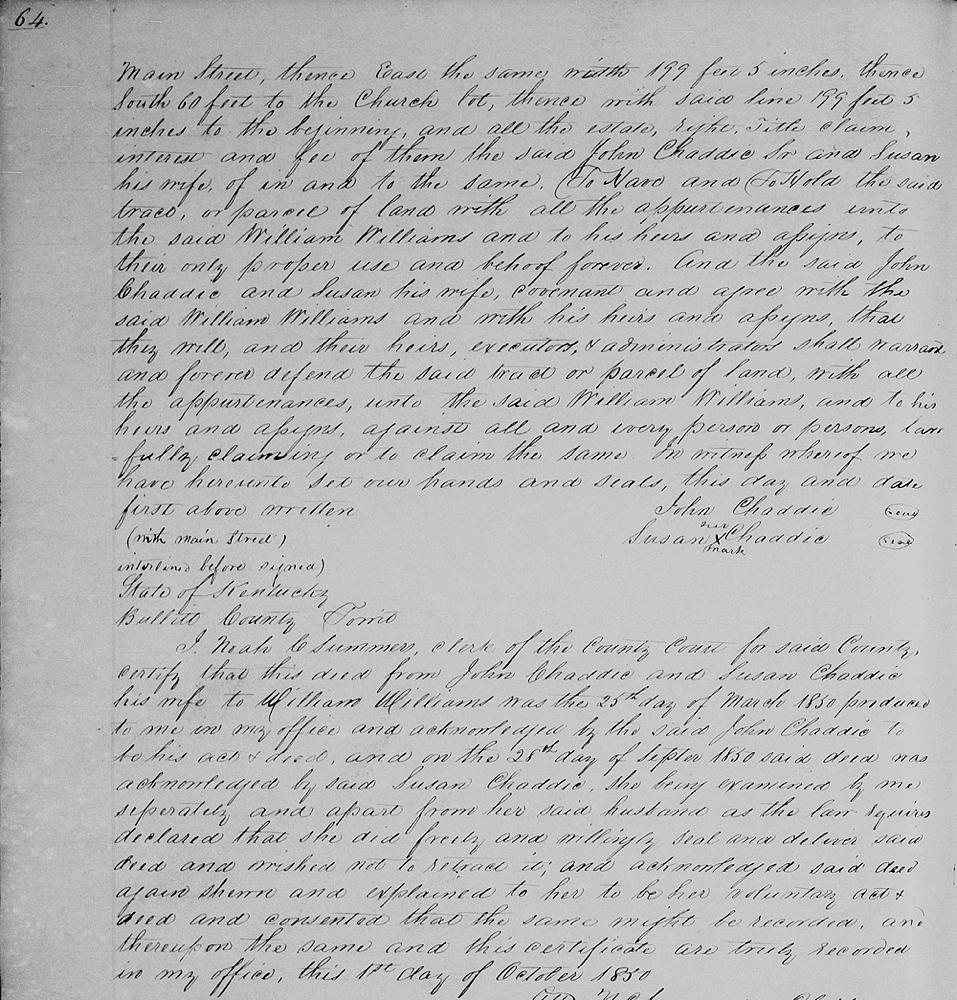 64.
Main Street, thence East the same width 199 feet 5 inches, thence
South 60 feet to the Church lot, thence with said line 199 feet 5
inches to the beginning, and all the estate, right, Title claim,
interest and fee of them the said John Chaddic Sr and Susan
his wife, of in and to the same. To Have and To Hold the said
tract, or parcel of land with all the appurtenances unto
the said William Williams and to his heirs and assigns, to
their only proper use and behoof forever. And the said John
Chaddic and Susan his wife, covenant and agree with the
said William Williams and with his heirs and assigns, that
they will, and their heirs, executors, & administrators shall warrant
and forever defend the said tract or parcel of land, with all
the appurtenances, unto the said William Williams, and to his
heirs and assigns, against all and every person or persons, law
fully claiming or to claim the same. In witness whereof we
have hereunto set our hands and seals, this day and date
first above written John Chaddic Seal
(with Main Street) Susan her X mark Chaddic Seal
interlined before signed)
State of Kentucky
Bullitt County Towit
I. Noah C Summers, clerk of the County Court for said County,
certify that this deed from John Chaddic and Susan Chaddic
his wife to William Williams was the 25th day of March 1850 produced
to me in my office and acknowledged by the said John Chaddic to
be his act & deed, and on the 28th day of Septer 1850 said deed was
acknowledged by said Susan Chaddic, she being examined by me
seperately and apart from her said husband as the law requires
declared that she did freely and willingly seal and deliver said
deed and wished not to retract it; and acknowledged said deed
again shewn and explained to her to be her voluntary act &
deed and consented that the same might be recorded, and
thereupon the same and this certificate are truly recorded
in my office, this 1st day of October 1850